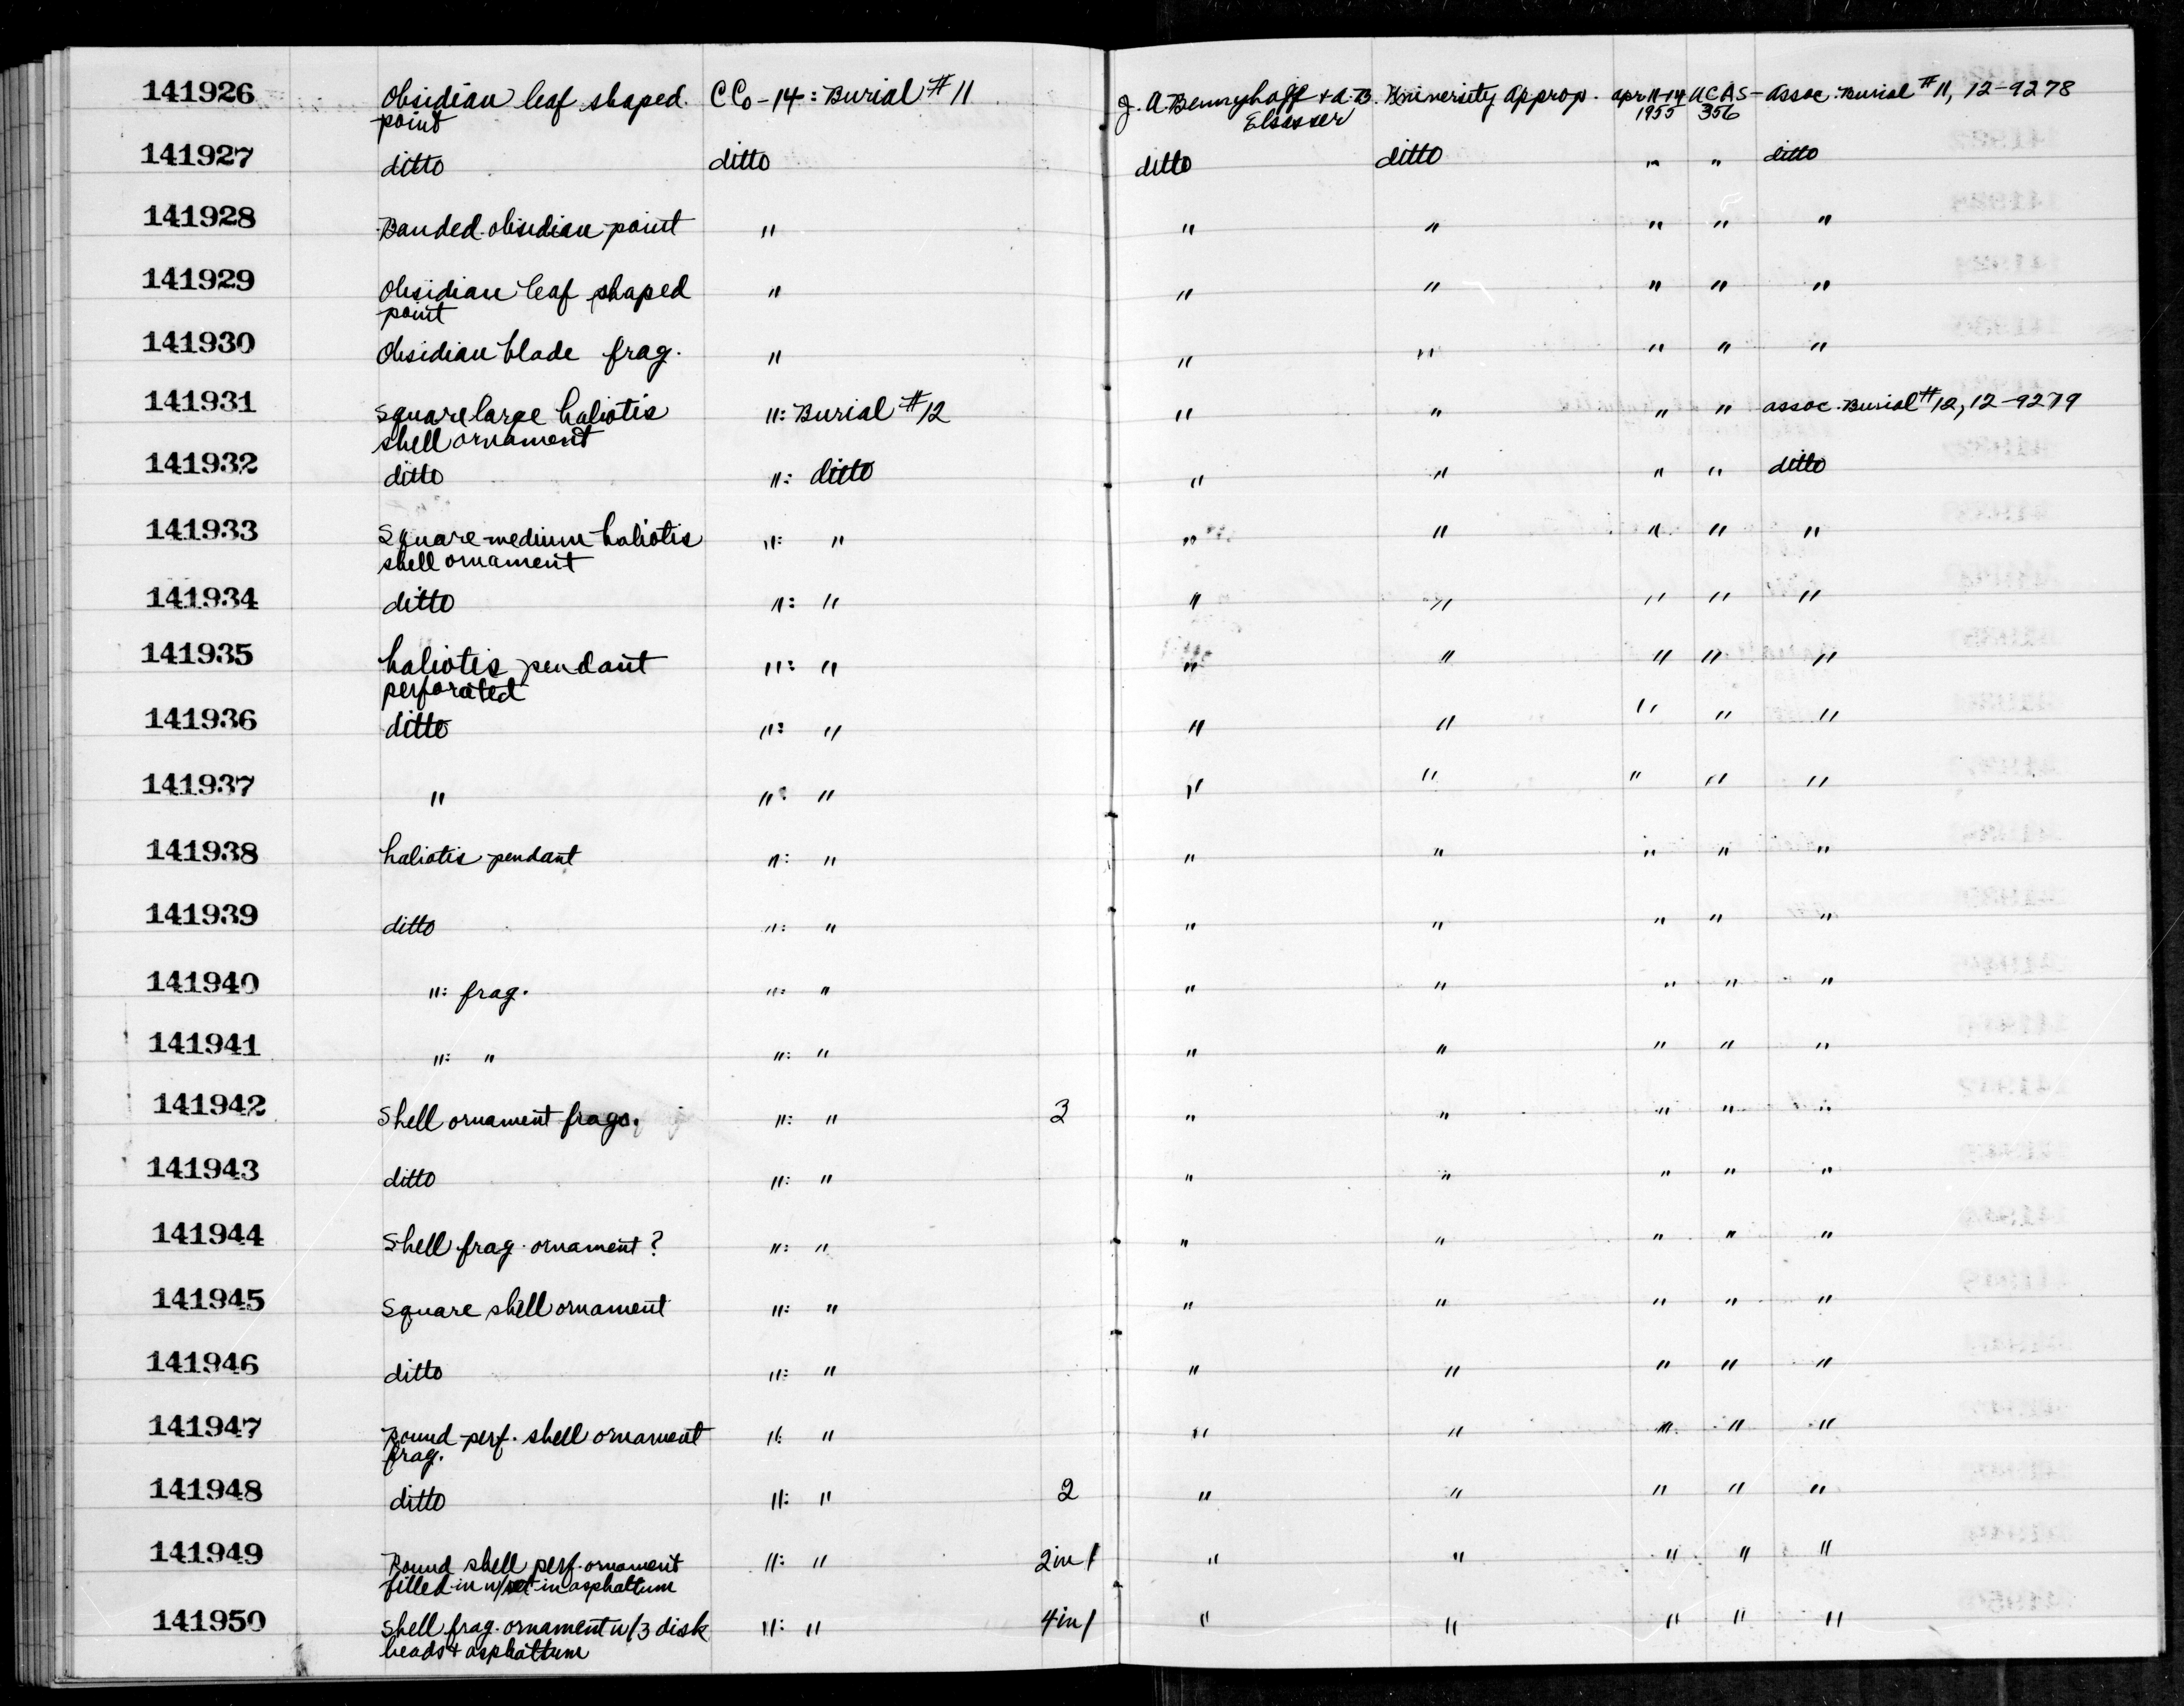 141926 Obsidian leaf shaped CCo-14: Burial #11 J. A. Bennyhoff + A.B. University Approp. Apr 11-14 UCAS- Assoc. Burial #11, 12-9278
point Elsasser 1955 356
141927 ditto ditto ditto ditto " " ditto
141928 Banded obsidian point " " " " " "
141929 Obsidian leaf shaped " " " " " "
point
141930 Obsidian blade frag. " " " " " "
141931 Square large haliotis ": Burial #12 " " " " assoc. Burial #12, 12-9279
shell ornament
141932 ditto ": ditto " " " " ditto
141933 Square medium haliotis ": " " " " " "
shell ornament
141934 ditto ": " " " " " "
141935 haliotis pendant ": " " " " " "
perforated
141936 ditto ": " " " " " "
141937 " ": " " " " " "
141938 haliotis pendant ": " " " " " "
141939 ditto ": " " " " " "
141940 ": frag. ": " " " " " "
141941 ": " ": " " " " " "
141942 Shell ornament frags. ": " 3 " " " " "
141943 ditto ": " " " " " "
141944 Shell frag. ornament? ": " " " " " "
141945 Square shell ornament ": " " " " " "
141946 ditto ": " " " " " "
141947 Round perf. shell ornament ": " " " " " "
frag.
141948 ditto ": " 2 " " " " "
141949 Round shell perf. ornament ": " 2 in 1 " " " " "
filled in w/ set in asphaltum
141950 Shell frag. ornament w/3 disk ": " 4 in 1 " " " " "
beads + asphaltum